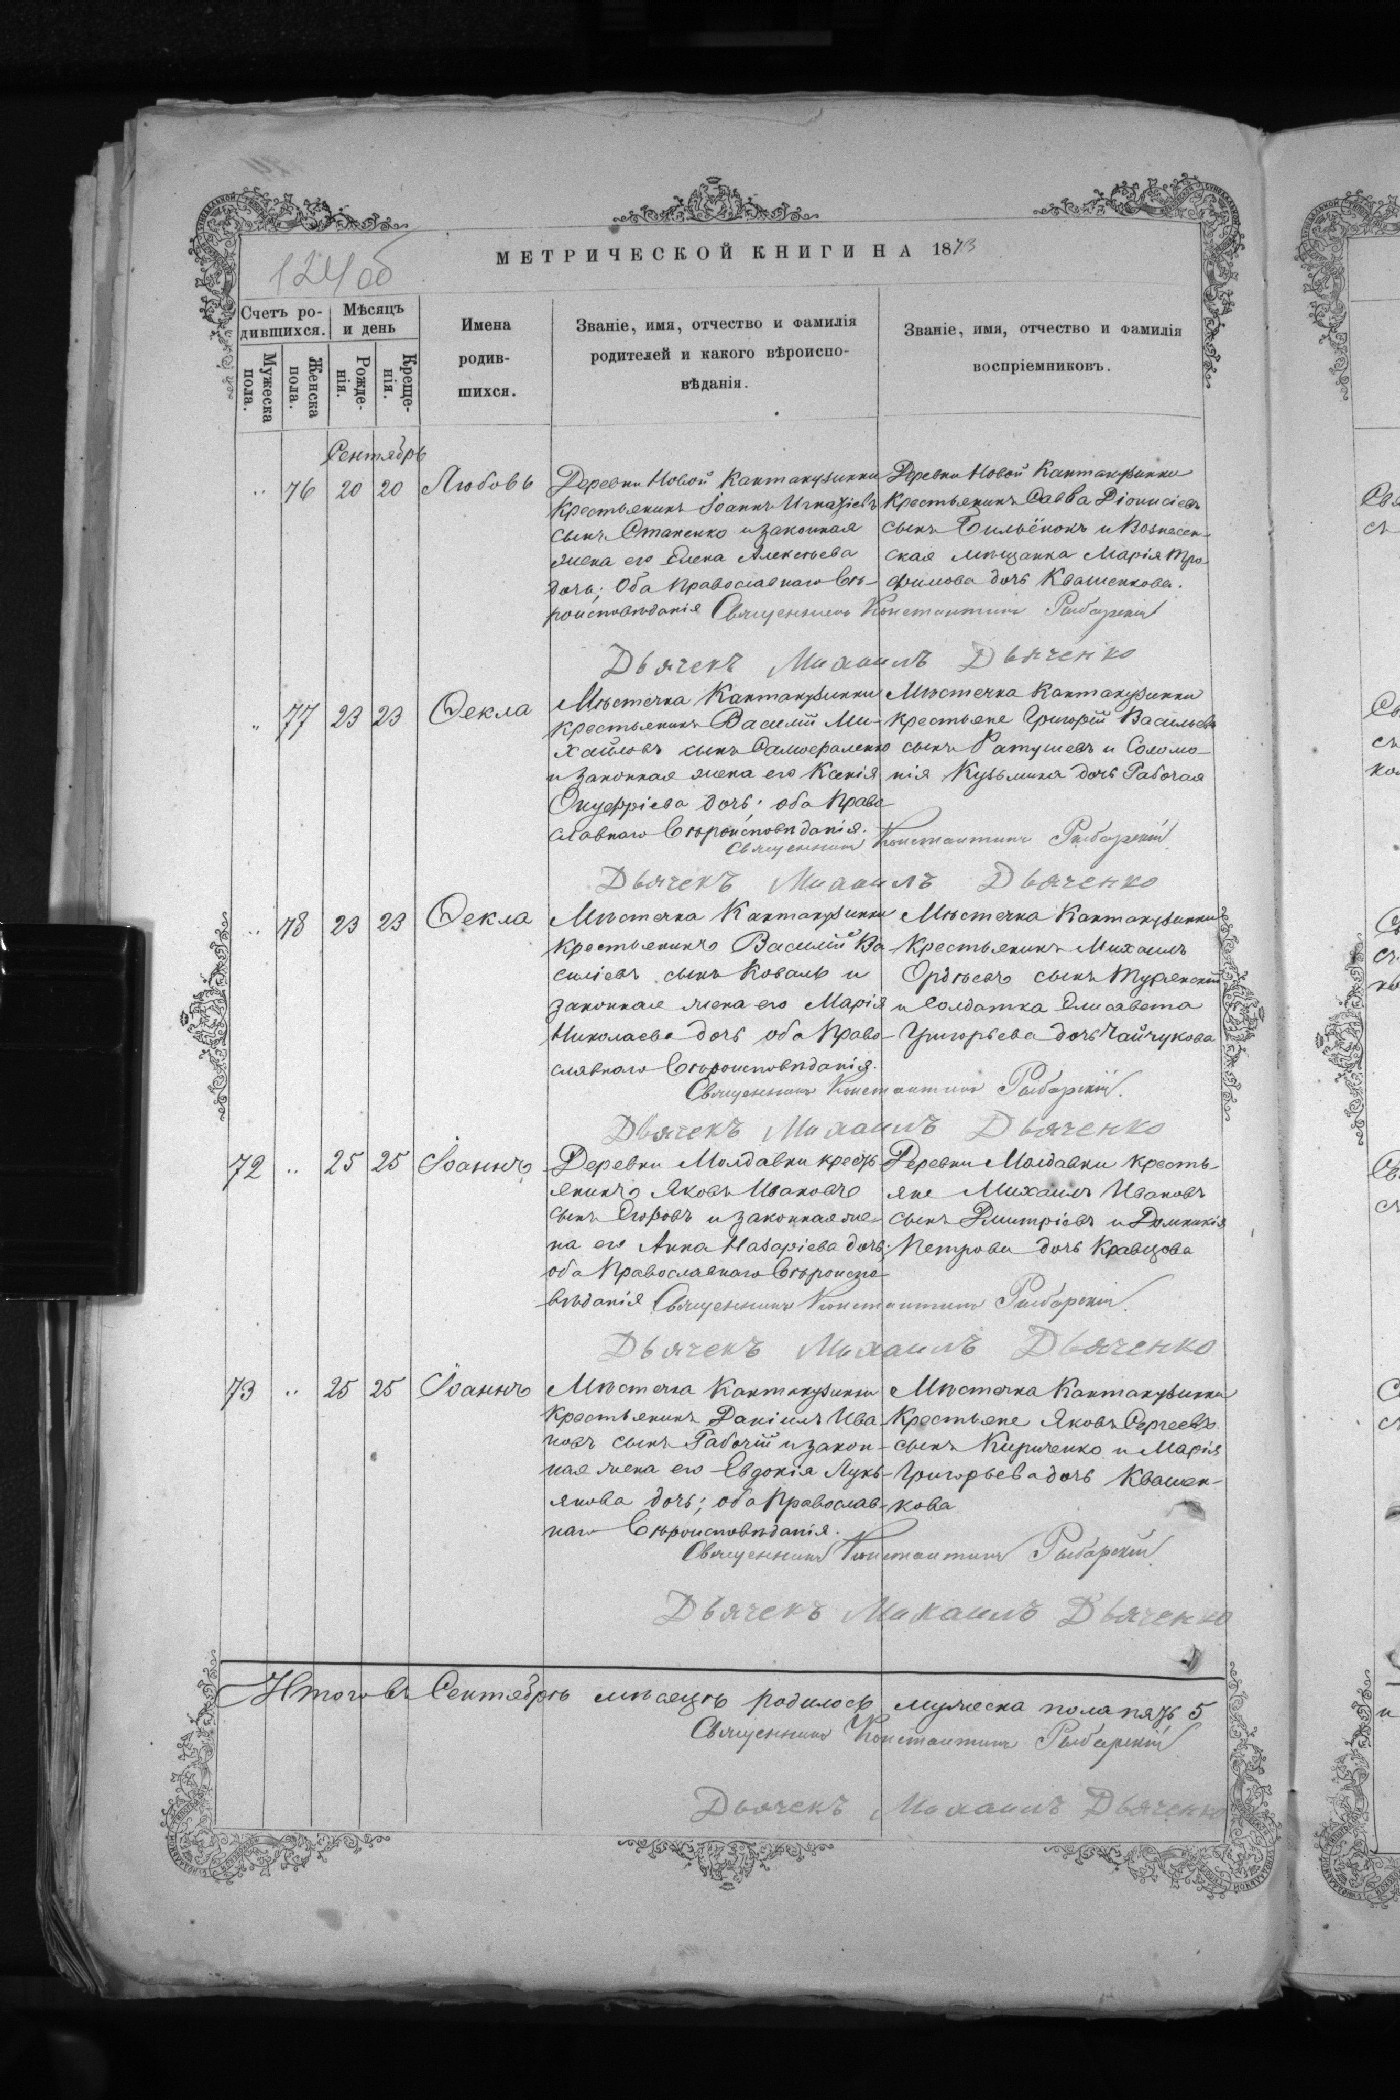 124об
МЕТРИЧЕСКОЙ КНИГИ НА 1873
Счетъ ро-
дившихся.
Мѣсяцъ
и день
Имена
родив-
шихся.
Званіе, имя, отчество и фамилія
родителей и какого вѣроиспо-
вѣданія.
Званіе, имя, отчество и фамилія
воспріемниковъ.
Мужеска
пола.
Женска
пола.
Рожде-
нія.
Креще-
нія.
Сентябрь
" 76 20 20 Любовь
Деревни Новой Кантакузинки
крестьянинъ Іоаннъ Игнатіевъ
сынъ Станенко и законная
жена его Елена Алексѣева
дочь; Оба православнаго Вѣ-
роисповѣданія
Деревни Новой Кантакузинки
Крестьянинъ Савва Діонисіевъ
сынъ Бильёнокъ и Вознесен-
ская мѣщанка Марія Тро-
фимова дочь Квашенкова.
Священникъ Константинъ Рыбарскій
Дьячекъ Михаилъ Дьяченко
" 77 23 23 Ѳекла
Мѣстечка Кантакузинки
крестьянинъ Василій Ми-
хайловъ сынъ Самофаленко
и законная жена его Ксенія
Онуфріева дочь; оба Право-
славнаго Вѣроисповѣданія.
Мѣстечка Кантакузинки
крестьяне Григорій Васильевъ
сынъ Ратушевъ и Соломо-
нія Кузьмина дочь Рабочая
Священникъ Константинъ Рыбарскій
Дьячекъ Михаилъ Дьяченко
" 78 23 23 Ѳекла
Мѣстечка Кантакузинки
крестьянинъ Василій Ва-
силіевъ сынъ Коваль и
законная жена его Марія
Николаева дочь оба Право-
славнаго Вѣроисповѣданія.
Мѣстечка Кантакузинки
Крестьянинъ Михаилъ
сынъ Турянскій
и Солдатка Елисавета
Григорьева дочь Чайчукова
Священникъ Константинъ Рыбарскій.
Дьячекъ Михаилъ Дьяченко
72 " 25 25 Іоаннъ
Деревни Молдавки кресть-
янинъ Яковъ Ивановъ
сынъ Егоровъ и законная же-
на его Анна Назаріева дочь;
оба Православнаго Вѣроиспо-
вѣданія
Деревни Молдавки кресть-
яне Михаилъ Ивановъ
сынъ Дмитріевъ и Домникія
Петрова дочь Кравцова
Священникъ Константинъ Рыбарскій.
Дьячекъ Михаилъ Дьяченко
73 " 25 25 Іоаннъ
Мѣстечка Кантакузинки
Крестьянинъ Даніилъ Ива-
новъ сынъ Рабочій и закон-
ная жена его Евдокія Лукь-
янова дочь; оба Православ-
наго Вѣроисповѣданія.
Мѣстечка Кантакузинки
Крестьяне Яковъ Сергеевъ
сынъ Кириченко и Марія
Григорьева дочь Квашен-
кова
Священникъ Константинъ Рыбарскій
Дьячекъ Михаилъ Дьяченко
Итого въ Сентябрѣ мѣсяцѣ родилось мужеска пола пять 5
Священникъ Константинъ Рыбарскій
Дьячекъ Михаилъ Дьяченко